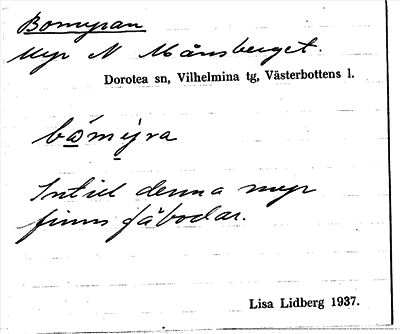 Bomyran
Myr N Månsberget.
Dorotea sn, Vilhelmina tg, Västerbottens l.
bωmy̱ra
Intill denna myr
finns fäbodar.
Lisa Lidberg 1937.